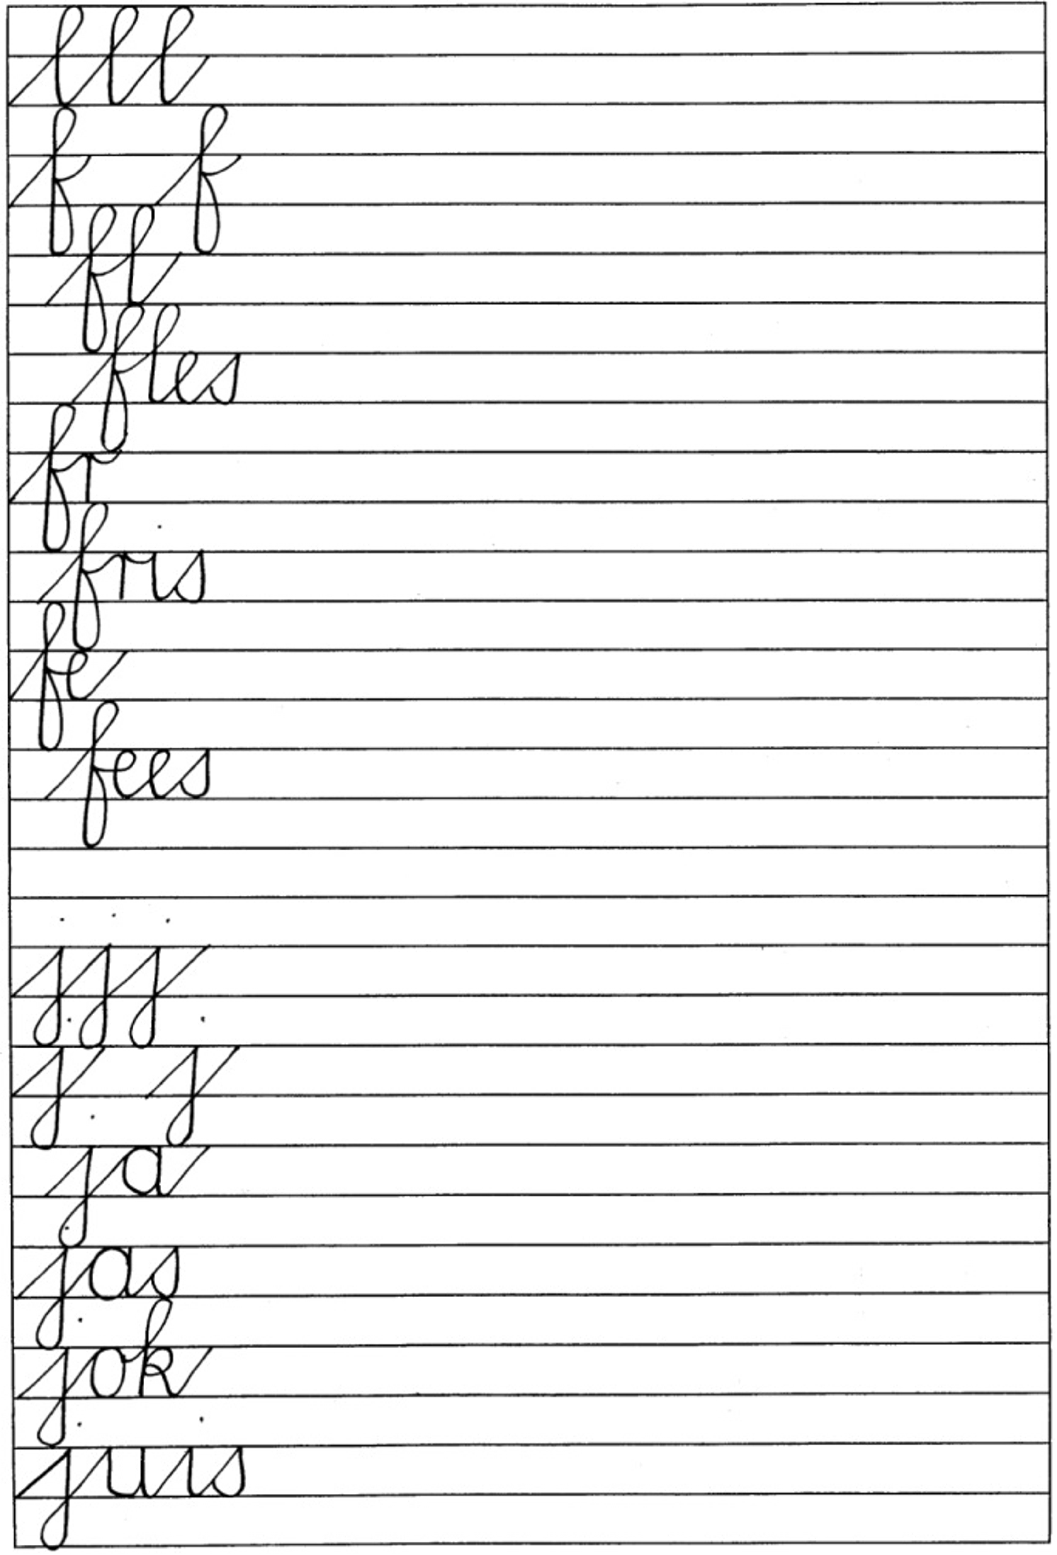 lll
f f
fl
fles
fr
fris
fe
fees
jjj
j j
ja
jas
jok
juis